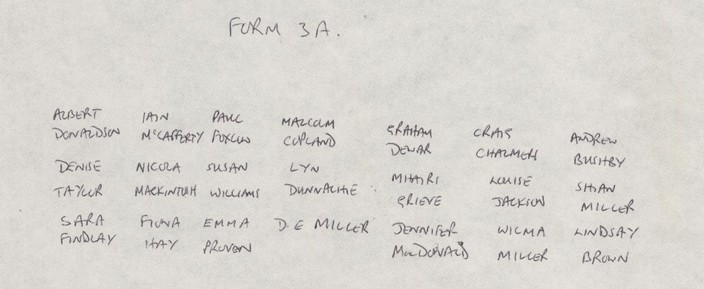 FORM 3A.
ALBERT IAIN PAUL MALCOLM GRAHAM CRAIG ANDREW
DONALDSON McCAFFERTY FOXLEY COPLAND DEWAR CHALMERS BUSHBY
DENISE NICOLA SUSAN LYN MHAIRI LOUISE SHIAN
TAYLOR MACKINTOSH WILLIAMS DUNNACHIE GRIEVE JACKSON MILLER
SARA FIONA EMMA D.E MILLER JENNIFER WILMA LINDSAY
FINDLAY HAY PROVEN MacDONALD MILLER BROWN